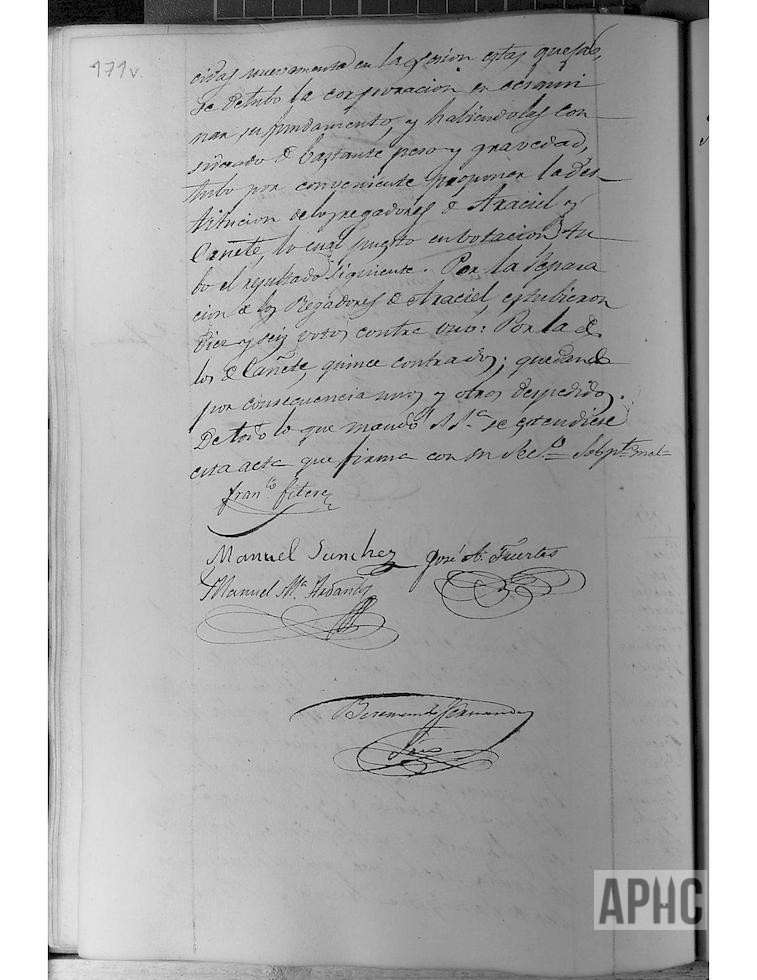 171v.
cidas nuevamente en la sesion estas quejas,
se detubo la corporacion en
nar su fundamento, y habiendolas con-
siderado d bastante peso y gravedad,
tubo por conveniente proponer la des-
titucion de los regadores d Araciel y
Cañete, lo cual puesto en botacion tu-
bo el resultado siguiente. Por la separa
cion de los Regadores d Araciel, estubieron
diez y seis votos contra uno: Por la de
los d Cañete, quince contra dos; quedando
por consecuencia unos y otros despedidos.
De todo lo que mandó S.Sª se estendiese
esta acta que firma con
Franco. Fitere
Manuel Sanchez José A. Fuertes
Manuel Mª.
Fernandez
APHC